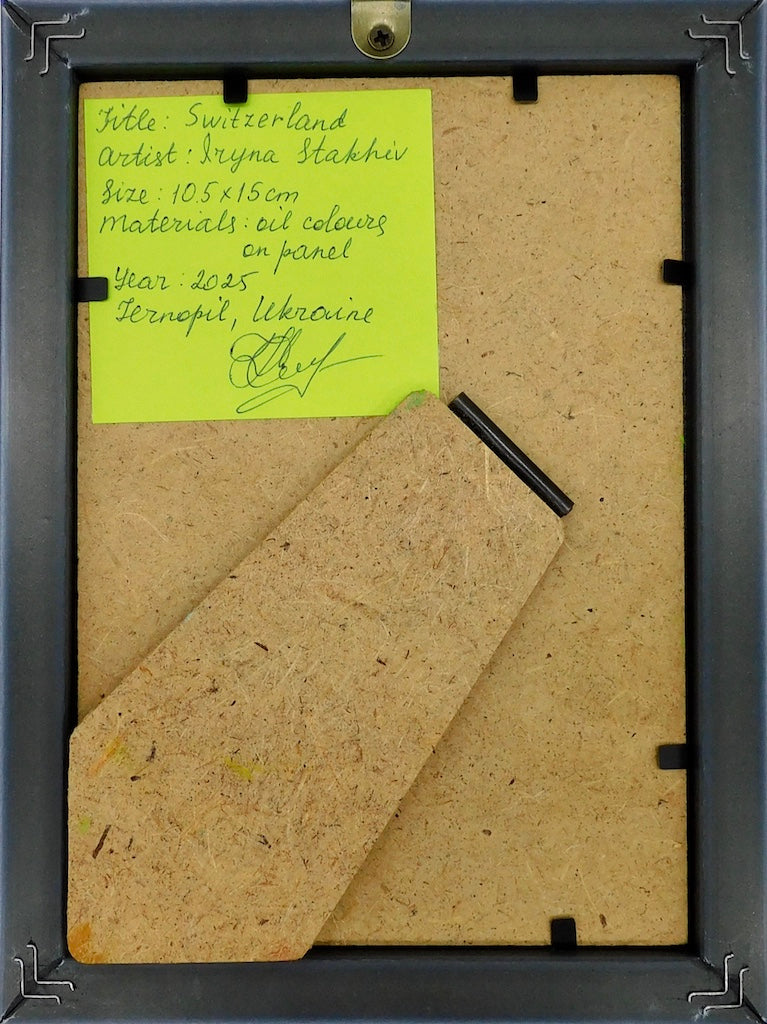 Title: Switzerland
Artist: Iryna Stakhiv
Size: 10.5x15cm
Materials: oil colours
on panel
Year: 2025
Ternopil, Ukraine